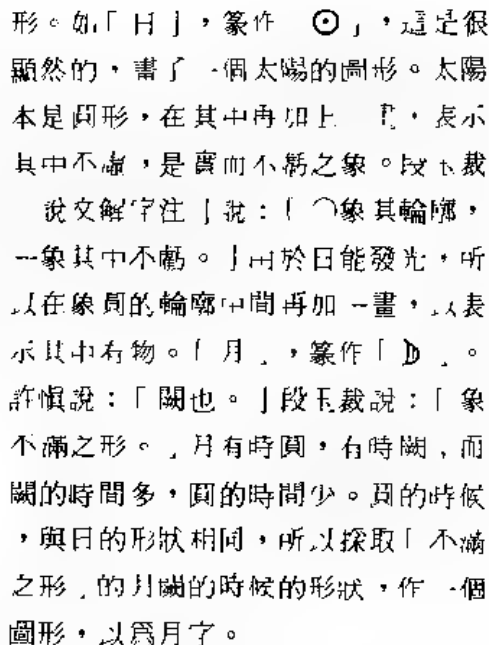 形。如「日」，篆作「☉」，這是很
顯然的，畫了一個太陽的圖形。太陽
本是圓形，在其中再加上一畫，表示
其中不虛，是實而不虧之象。段玉裁
說文解字注」說：「〇象其輪廓，
一象其中不虧。」由於日能發光，所
以在象圓的輪廓中間再加一畫，以表
示其中有物。「月」，篆作「D」。
許愼說：「闕也。」段玉裁說：「象
不滿之形。」月有時圓，有時闕，而
闕的時間多，圓的時間少。圓的時候
，與日的形狀相同，所以採取「不滿
之形」的月闕的時候的形狀，作一個
圖形，以爲月字。